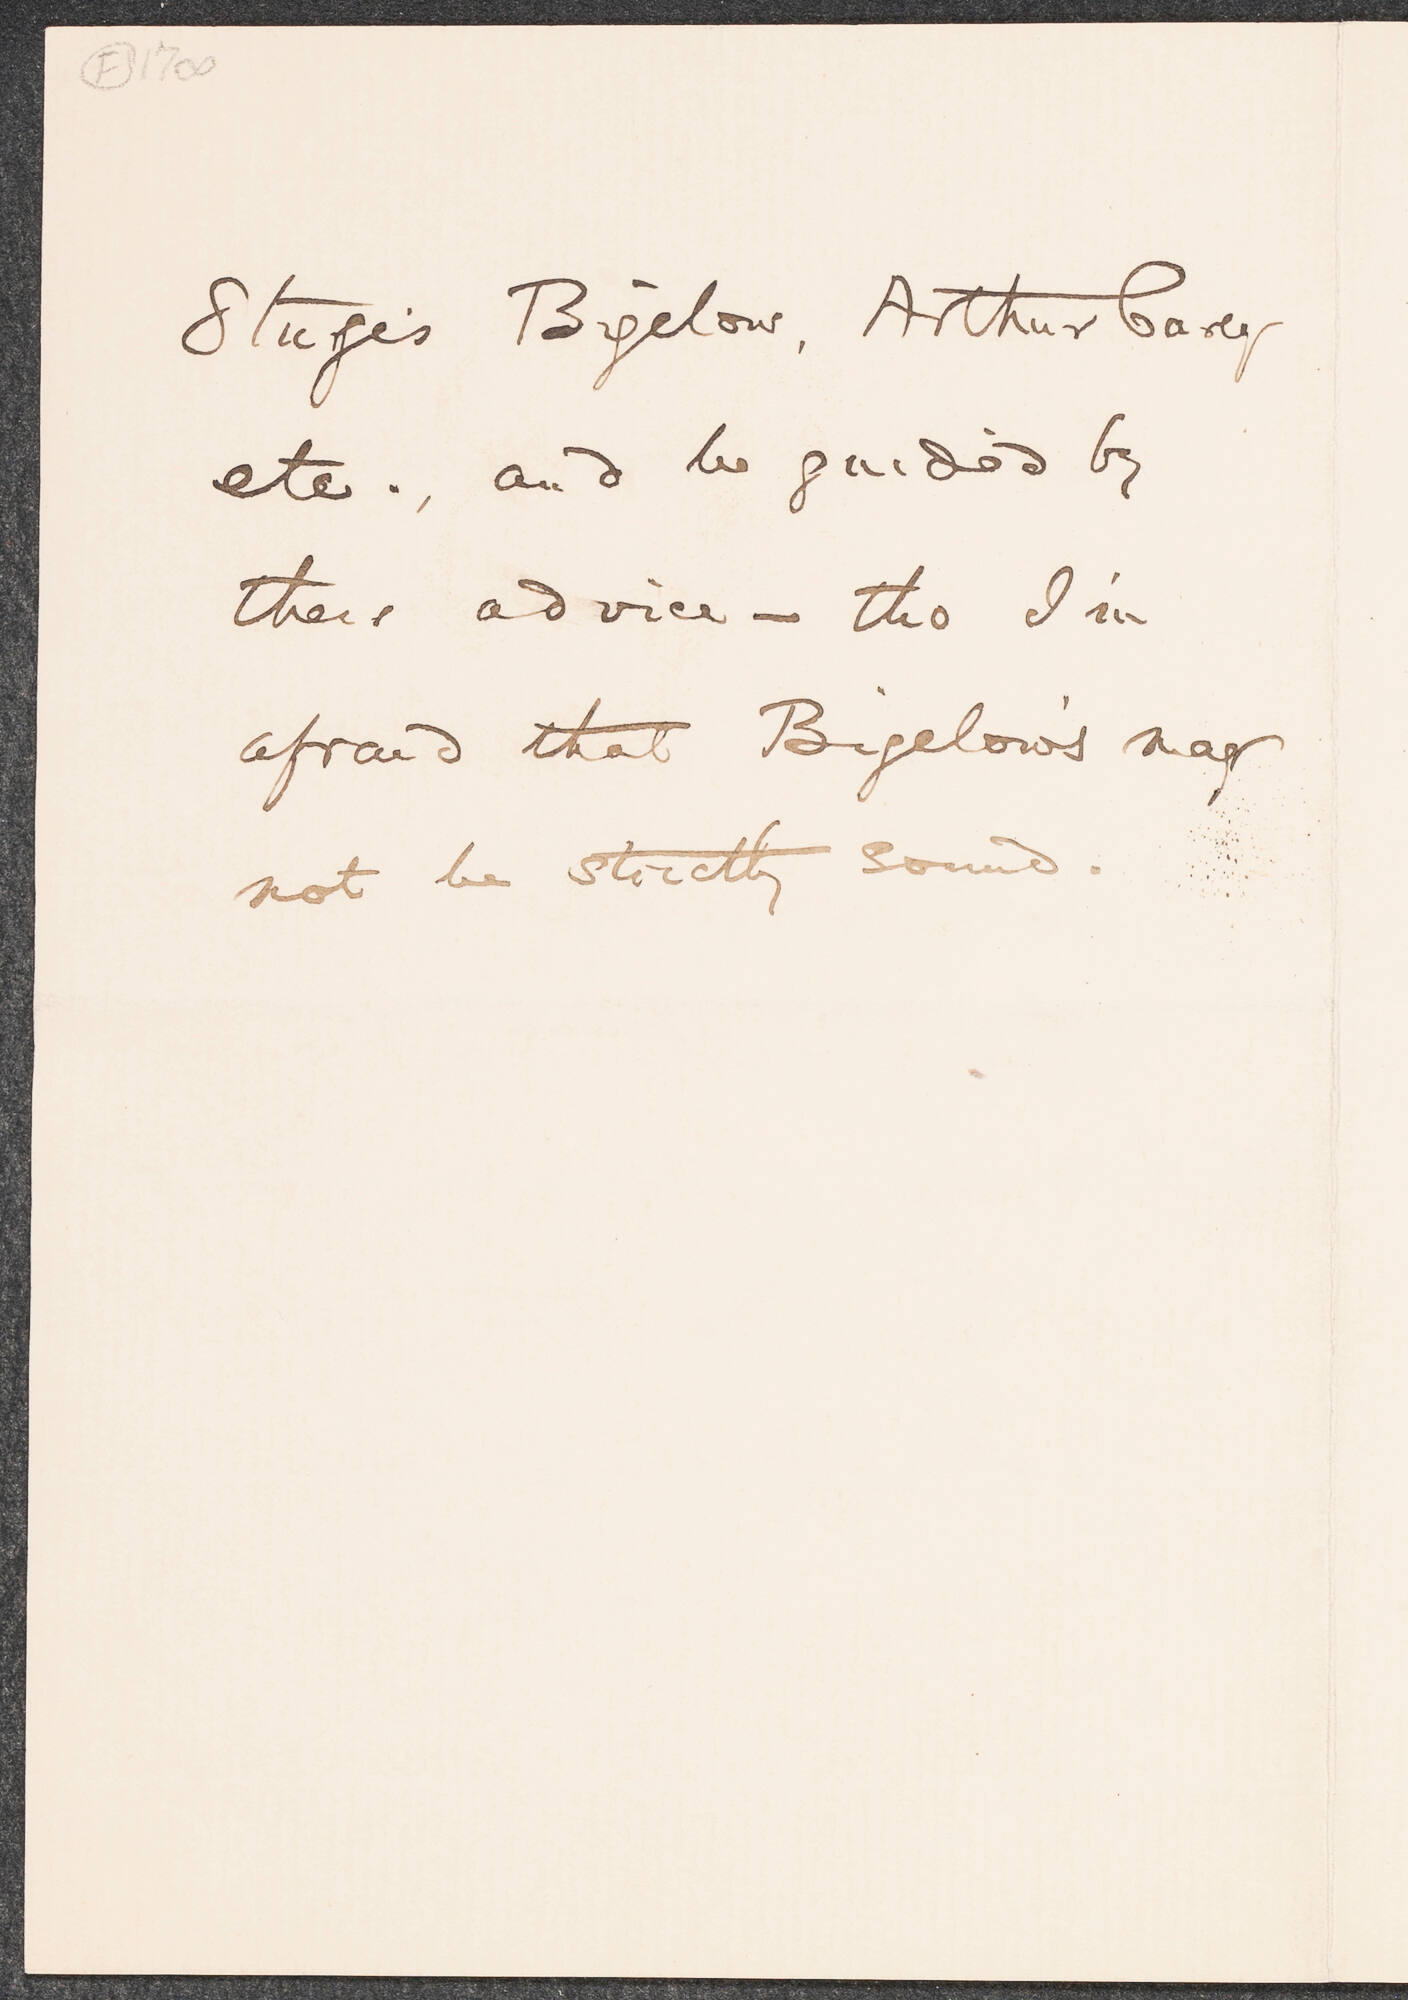 (F) 1700
Sturgis Bigelow, Arthur Carey
etc., and be guided by
their advice — tho I'm
afraid that Bigelow's may
not be strictly sound.